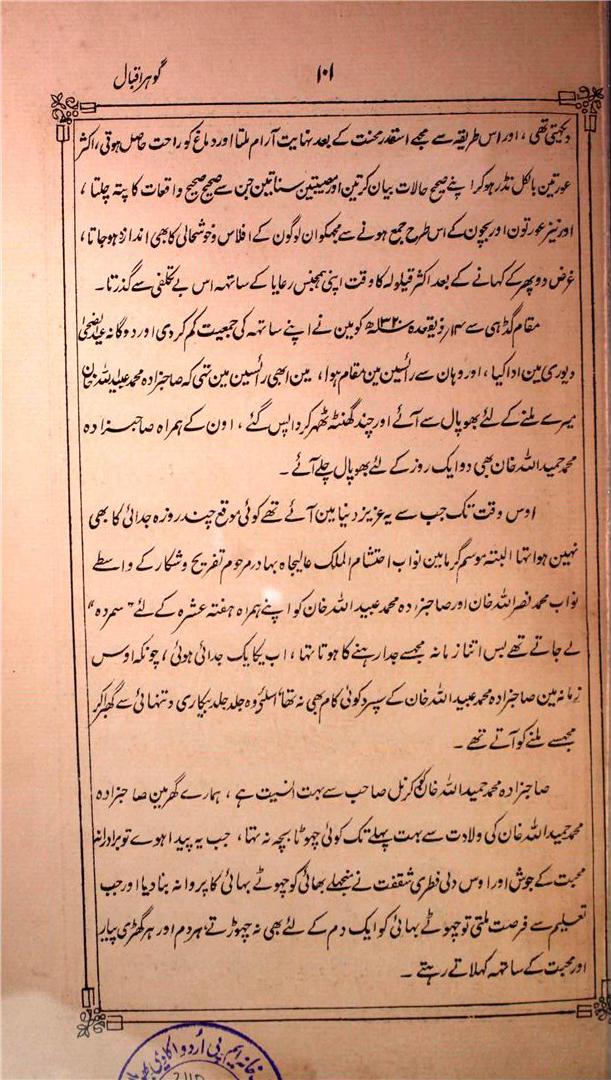 گوہر اقبال
۱۰۱
دیکھتی تھی ، اور اس طریقہ سے مجھے اسقدر محنت کے بعد نہایت آرام ملتا اور دماغ کو راحت حاصل ہوتی ، اکثر
عورتین بالکل نڈر ہو کر اپنے صحیح حالات بیان کرتین اور مصیبتین سناتین جن سے صحیح صحیح واقعات کا پتہ چلتا ،
اور نیز عورتون اور بچون کے اس طرح جمع ہونے سے مجھکو ان لوگون کے افلاس و خوشحالی کا بھی اندازہ ہو جاتا ،
غرض دوپہر کے کہانے کے بعد اکثر قیلولہ کا وقت اپنی ہمجنس رعایا کے ساتہہ اس بے تکلفی سے گذرتا ۔
مقام گڈہی سے ۱۴ ذیقعدہ ۱۳۲۰ھ کو مین نے اپنے ساتہہ کی جمعیت کم کر دی اور دوگانہ عید اضحیٰ
دیوری مین ادا کیا ، اور وہان سے رائسین مین مقام ہوا ، مین ابھی رائسین مین تہی کہ صاحبزادہ محمد عبید اللہ خان
میرے ملنے کے لئے بھوپال سے آئے اور چند گھنٹہ ٹھہر کر واپس گئے ، اون کے ہمراہ صاحبزادہ
محمد حمید اللہ خان بھی دو ایک روز کے لئے بھوپال چلے آئے ۔
اوس وقت تک جب سے یہ عزیز دنیا مین آئے تھے کوئی موقع چند روزہ جدائی کا بھی
نہین ہوا تہا البتہ موسم گرما مین نواب احتشام الملک عالیجاہ بہادر مرحوم تفریح و شکار کے واسطے
نواب محمد نصر اللہ خان اور صاحبزادہ محمد عبید اللہ خان کو اپنے ہمراہ ہفتہ عشرہ کے لئے " سمردہ "
لے جاتے تھے بس اتنا زمانہ مجھسے جدا رہنے کا ہوتا تہا ، اب یکایک جدائی ہوئی ، چونکہ اوس
زمانہ مین صاحبزادہ محمد عبید اللہ خان کے سپرد کوئی کام بھی نہ تھا اسلئے وہ جلد جلد بیکاری و تنہائی سے گھبرا کر
مجھسے ملنے کو آتے تھے ۔
صاحبزادہ محمد حمید اللہ خان کو کرنل صاحب سے بہت انسیت ہے ، ہمارے گھر مین صاحبزادہ
محمد حمید اللہ خان کی ولادت سے بہت پہلے تک کوئی چہوٹا بچہ نہ تہا ، جب یہ پیدا ہوے تو برادرانہ
محبت کے جوش اور اوس دلی فطری شفقت نے منجھلے بھائی کو چھوٹے بہائی کا پروانہ بنا دیا اور جب
تعلیم سے فرصت ملتی تو چہوٹے بہائی کو ایک دم کے لئے بھی نہ چہوڑتے ہر دم اور ہر گھڑی پیار
اور محبت کے ساتہہ کہلاتے رہتے ۔
خانہ ایم پی اُردو اکاڈیمی